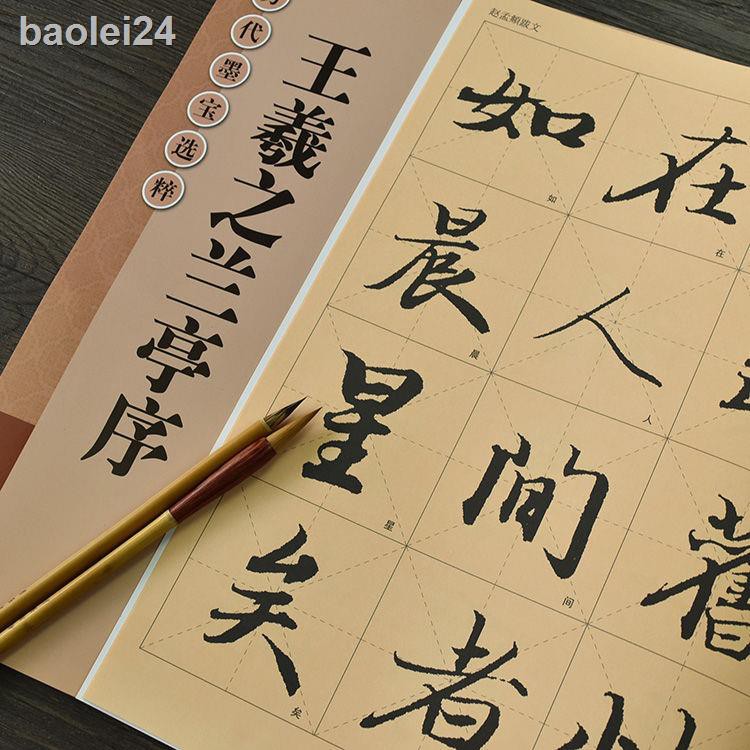 baolei24
历代墨宝选粹
王羲之兰亭序
赵孟頫跋文
舊
在人間者
在
人
间
如晨星矣
如
晨
星
矣